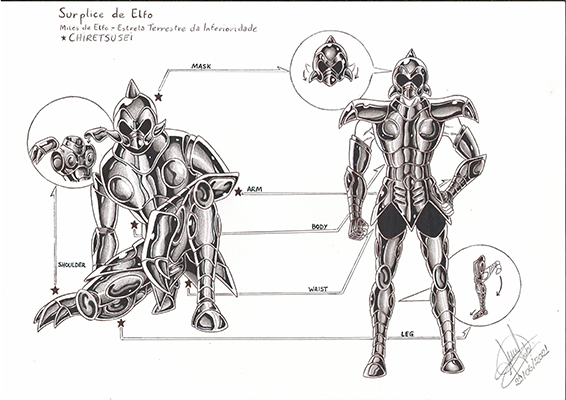 Surplice de Elfo
Mites de Elfo - Estrela Terrestre da Inferioridade
★CHIRETSUSEI
MASK
ARM
BODY
SHOULDER
WRIST
LEG
29/06/2021